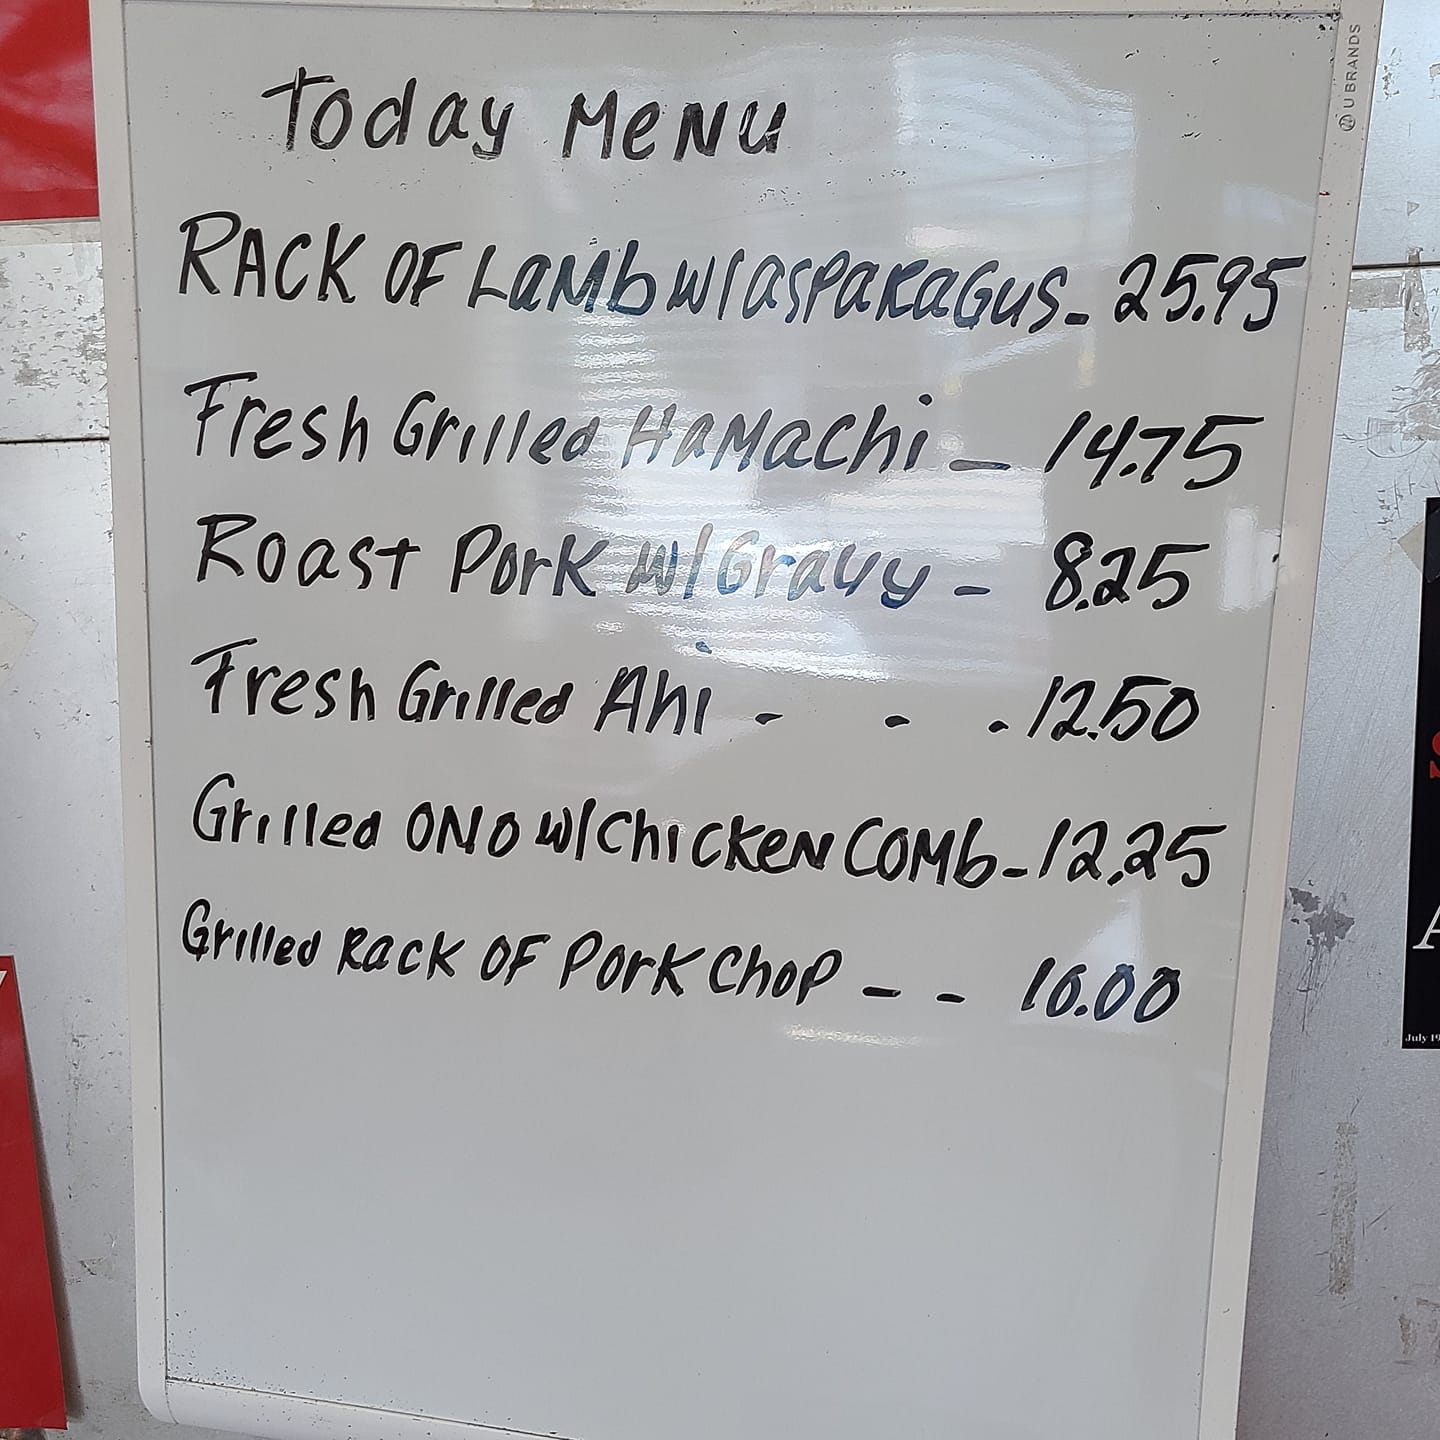 U BRANDS
Today Menu
RACK OF Lamb w/asparagus - 25.95
Fresh Grilled Hamachi - 14.75
Roast Pork w/Gravy - 8.25
Fresh Grilled Ahi - - - 12.50
Grilled ONO w/Chicken Comb - 12.25
Grilled Rack OF Pork Chop - - 10.00